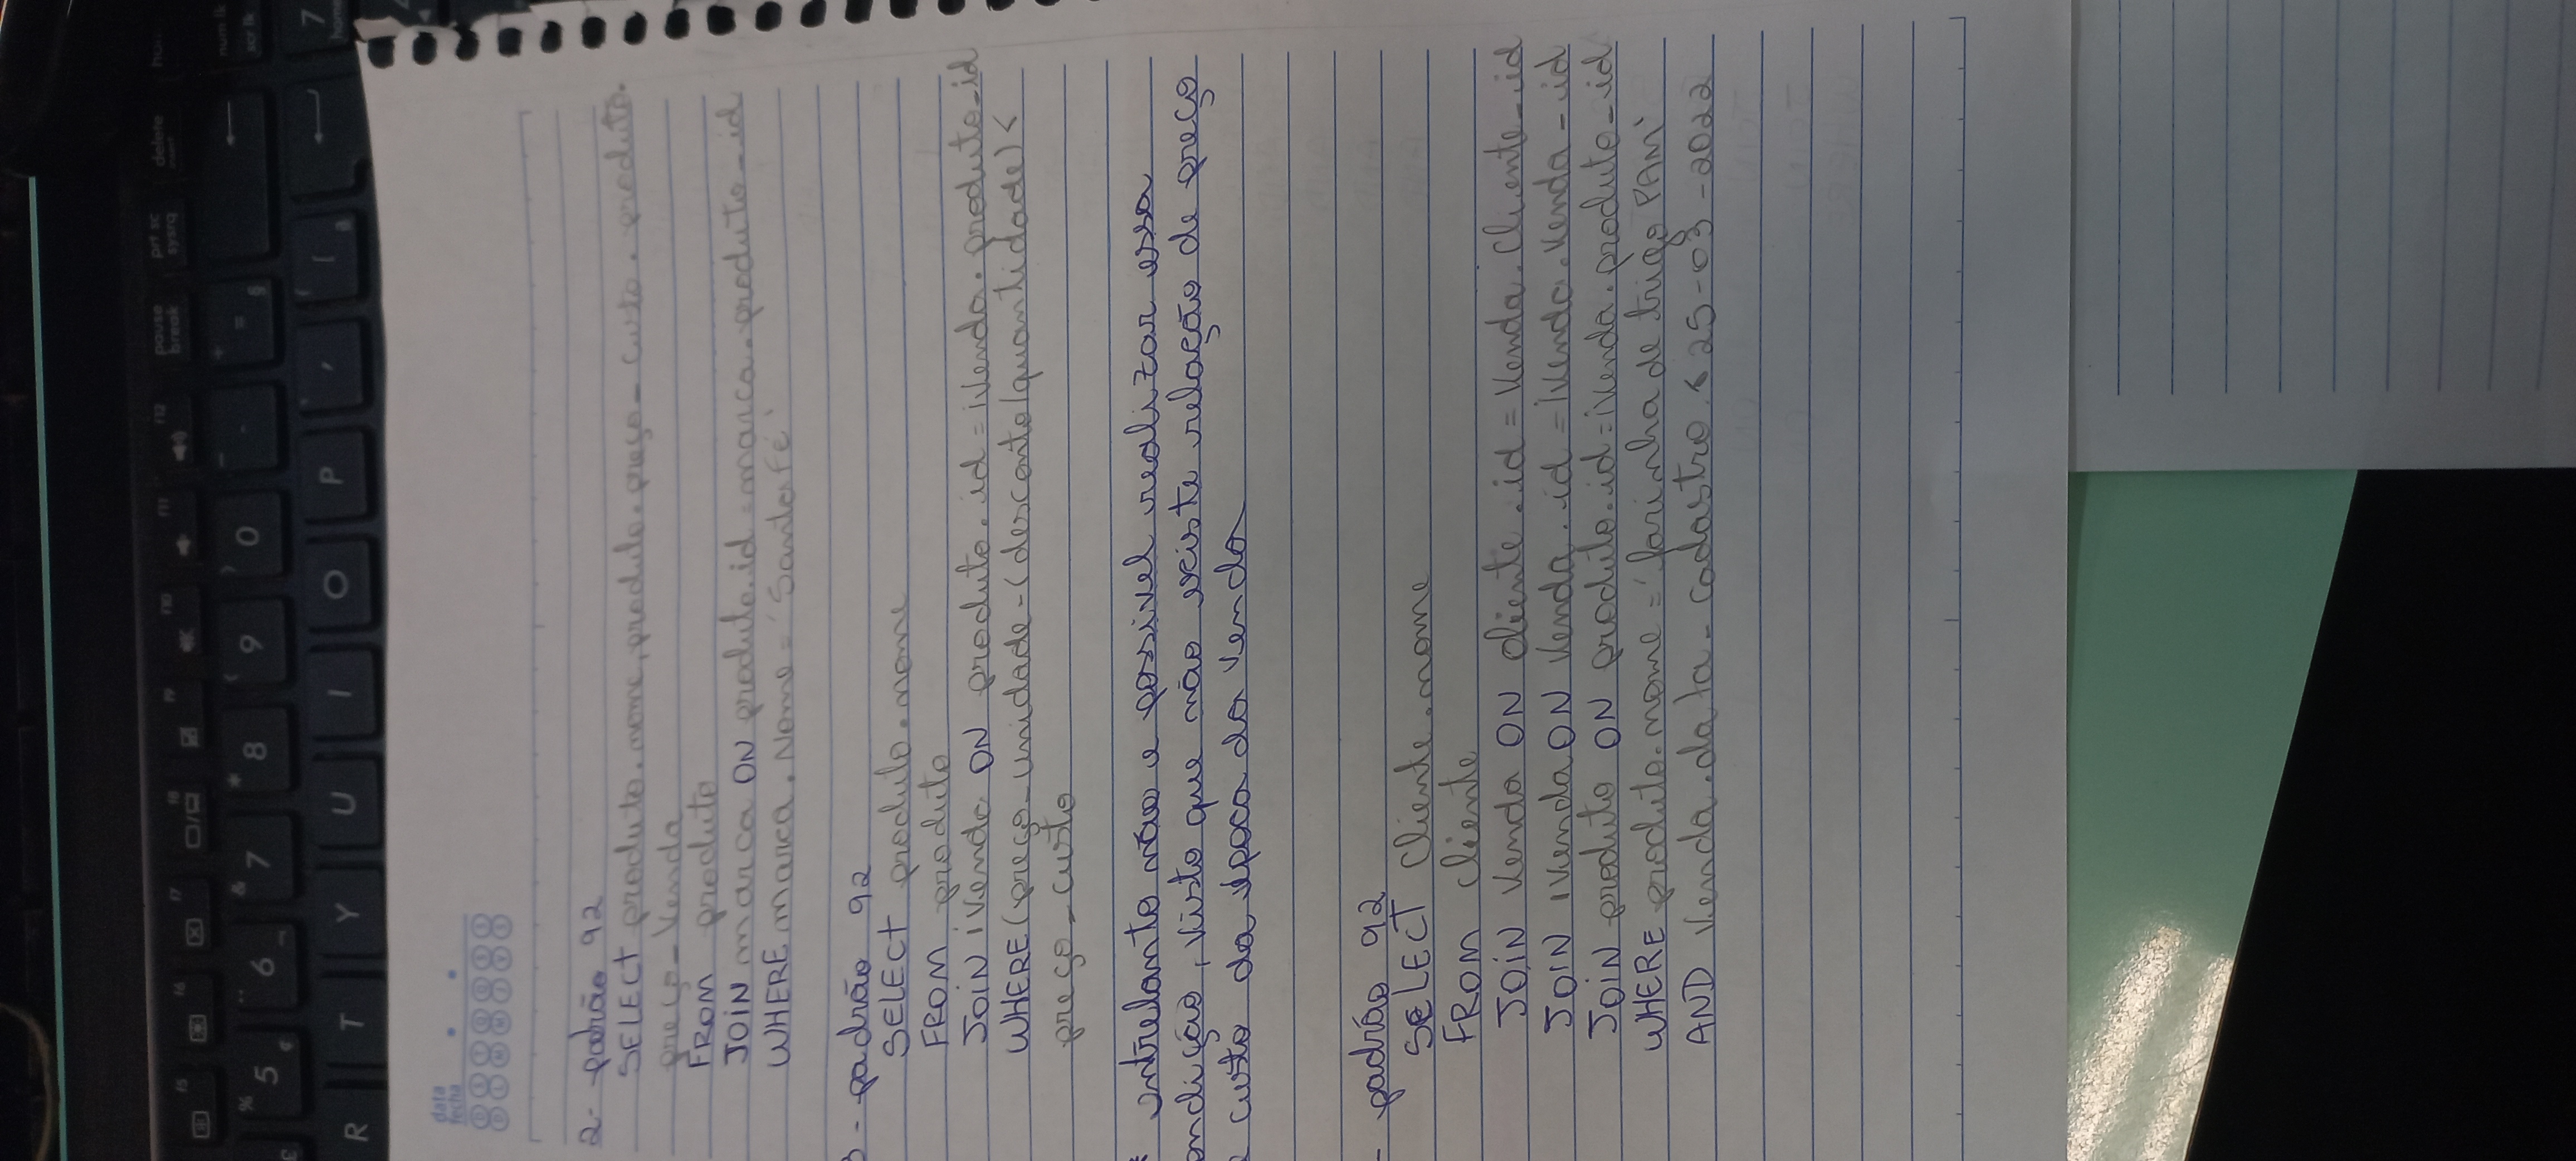 f5 f6 f7 f8 f9 f10 f11 f12 pause break prt sc sysrq delete
% 5 6 & 7 * 8 ( 9 ) 0 - + = § num lk scr lk
R T Y U I O P 7 home
data
fecha
2- padrão 92
SELECT produto.nome, produto.preço_custo. produto.
preço_Venda
FROM produto
JOIN marca ON produto.id = marca.produto_id
WHERE marca.Nome = 'Santa Fé'
3 - padrão 92
SELECT produto.nome
FROM produto
JOIN iVenda ON produto.id = iVenda.produto_id
WHERE (preço_unidade-(desconto/quantidade) <
preço_custo
* entretanto não e possivel realizar essa
ondição, visto que não existe relação de preço
e custo da época da venda
- padrão 92
SELECT Cliente.nome
FROM cliente
JOIN Venda ON cliente.id = Venda.Cliente_id
JOIN iVenda ON Venda.id = iVenda.Venda_id
JOIN produto ON produto.id = iVenda.produto_id
WHERE produto.nome = 'farinha de trigo PAM'
AND Venda.data_cadastro < 25-03-2022